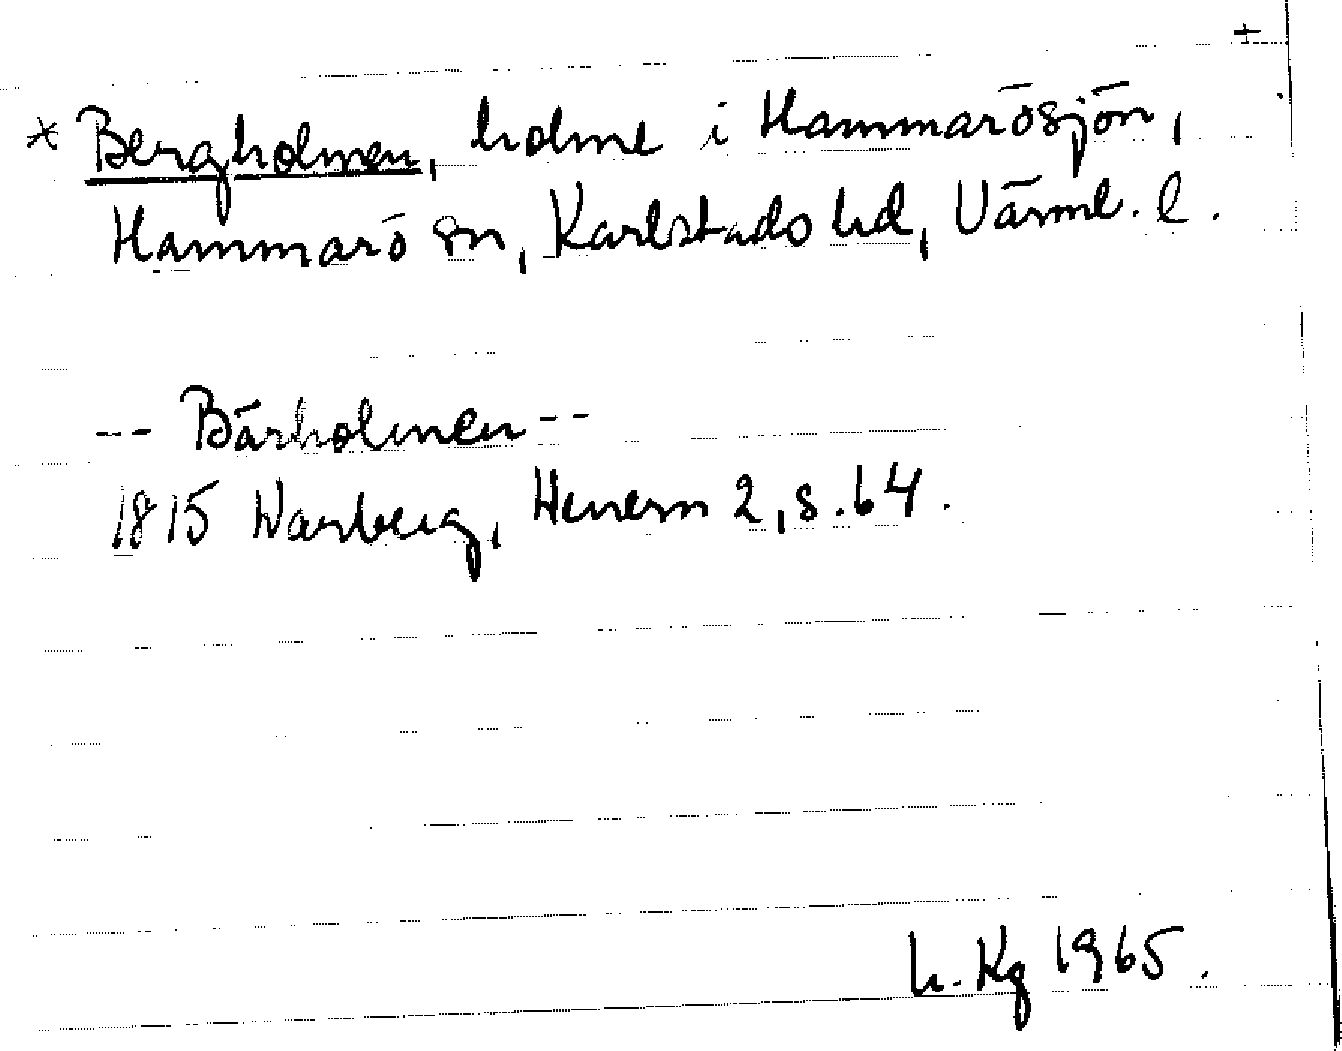 +
* Bergholmen, holme i Hammarösjön,
Hammarö sn, Karlstads hd, Värml. l.
-- Bärholmen --
1815 Warberg, Wenern 2, s. 64.
h. Kg 1965.